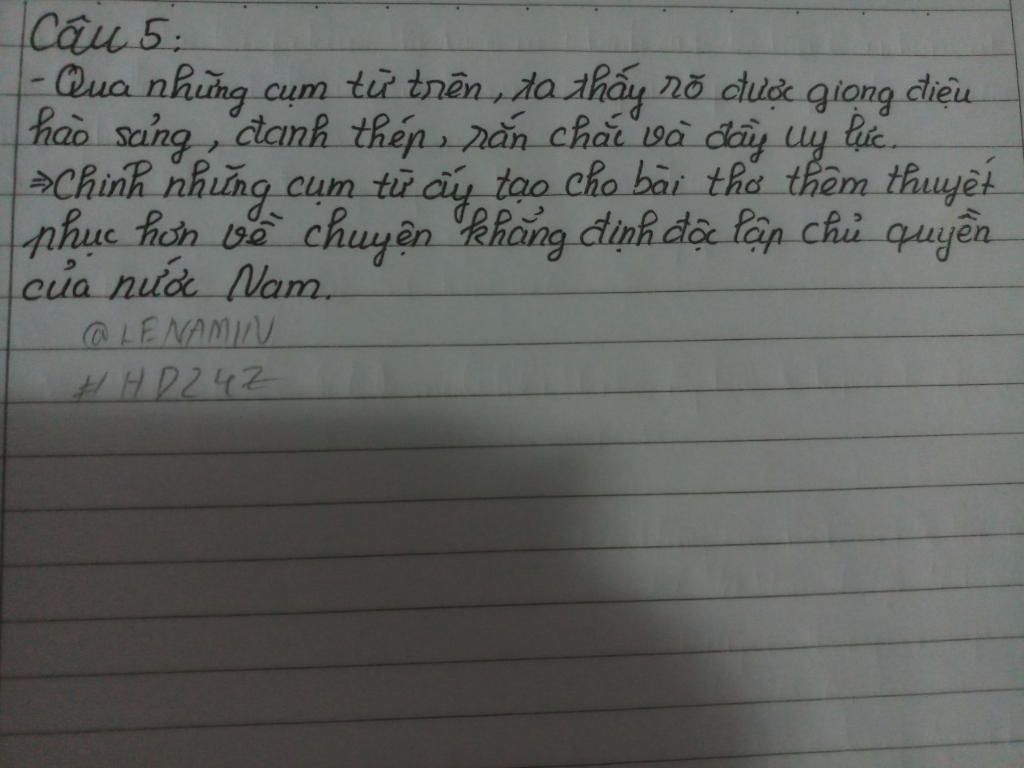 Câu 5:
- Qua những cụm từ trên, ta thấy rõ được giọng điệu
hào sảng, đanh thép, rắn chắc và đầy uy lực.
⇒ Chính những cụm từ ấy tạo cho bài thơ thêm thuyết
phục hơn về chuyện khẳng định độc lập chủ quyền
của nước Nam.
@LENAM11V
#HD24Z